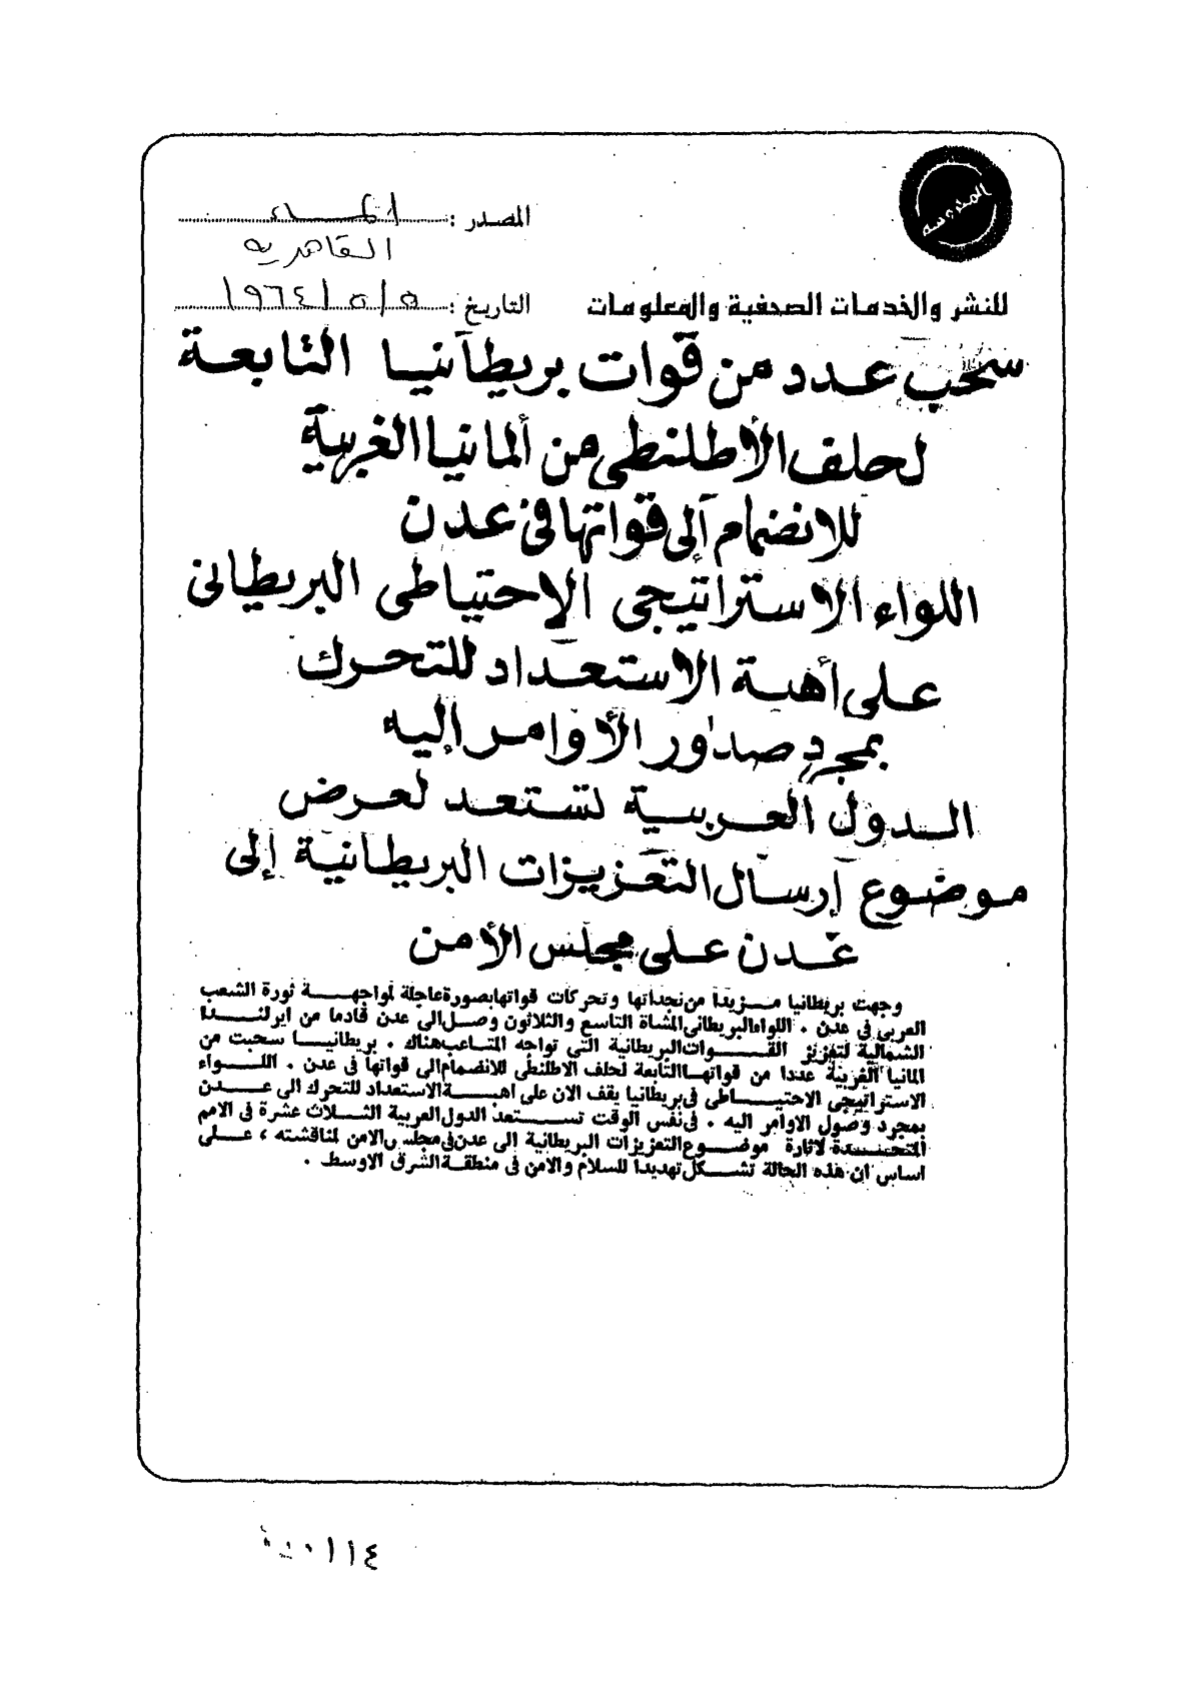 المحروسة
المصدر : المساء
القاهرية
للنشر والخدمات الصحفية والمعلومات
التاريخ : ٥/٥/١٩٦٤
سحب عدد من قوات بريطانيا التابعة
لحلف الأطلنطى من ألمانيا الغربية
للانضمام إلى قواتها فى عدن
اللواء الاستراتيجى الاحتياطى البريطانى
على أهبة الاستعداد للتحرك
بمجرد صدور الأوامر إليه
الدول العربية تستعد لعرض
موضوع إرسال التعزيزات البريطانية إلى
عدن على مجلس الأمن
وجهت بريطانيا مزيدا من نجداتها وتحركات قواتها بصورة عاجلة لمواجهة ثورة الشعب
العربى فى عدن . اللواء البريطانى المشاة التاسع والثلاثون وصل الى عدن قادما من ايرلندا
الشمالية لتعزيز القوات البريطانية التى تواجه المتاعب هناك . بريطانيا سحبت من
المانيا الغربية عددا من قواتها التابعة لحلف الاطلنطى للانضمام الى قواتها فى عدن . اللواء
الاستراتيجى الاحتياطى فى بريطانيا يقف الان على اهبة الاستعداد للتحرك الى عدن
بمجرد وصول الاوامر اليه . فى نفس الوقت تستعد الدول العربية الثلاث عشرة فى الامم
المتحدة لاثارة موضوع التعزيزات البريطانية الى عدن فى مجلس الامن لمناقشته ، على
اساس ان هذه الحالة تشكل تهديدا للسلام والامن فى منطقة الشرق الاوسط .